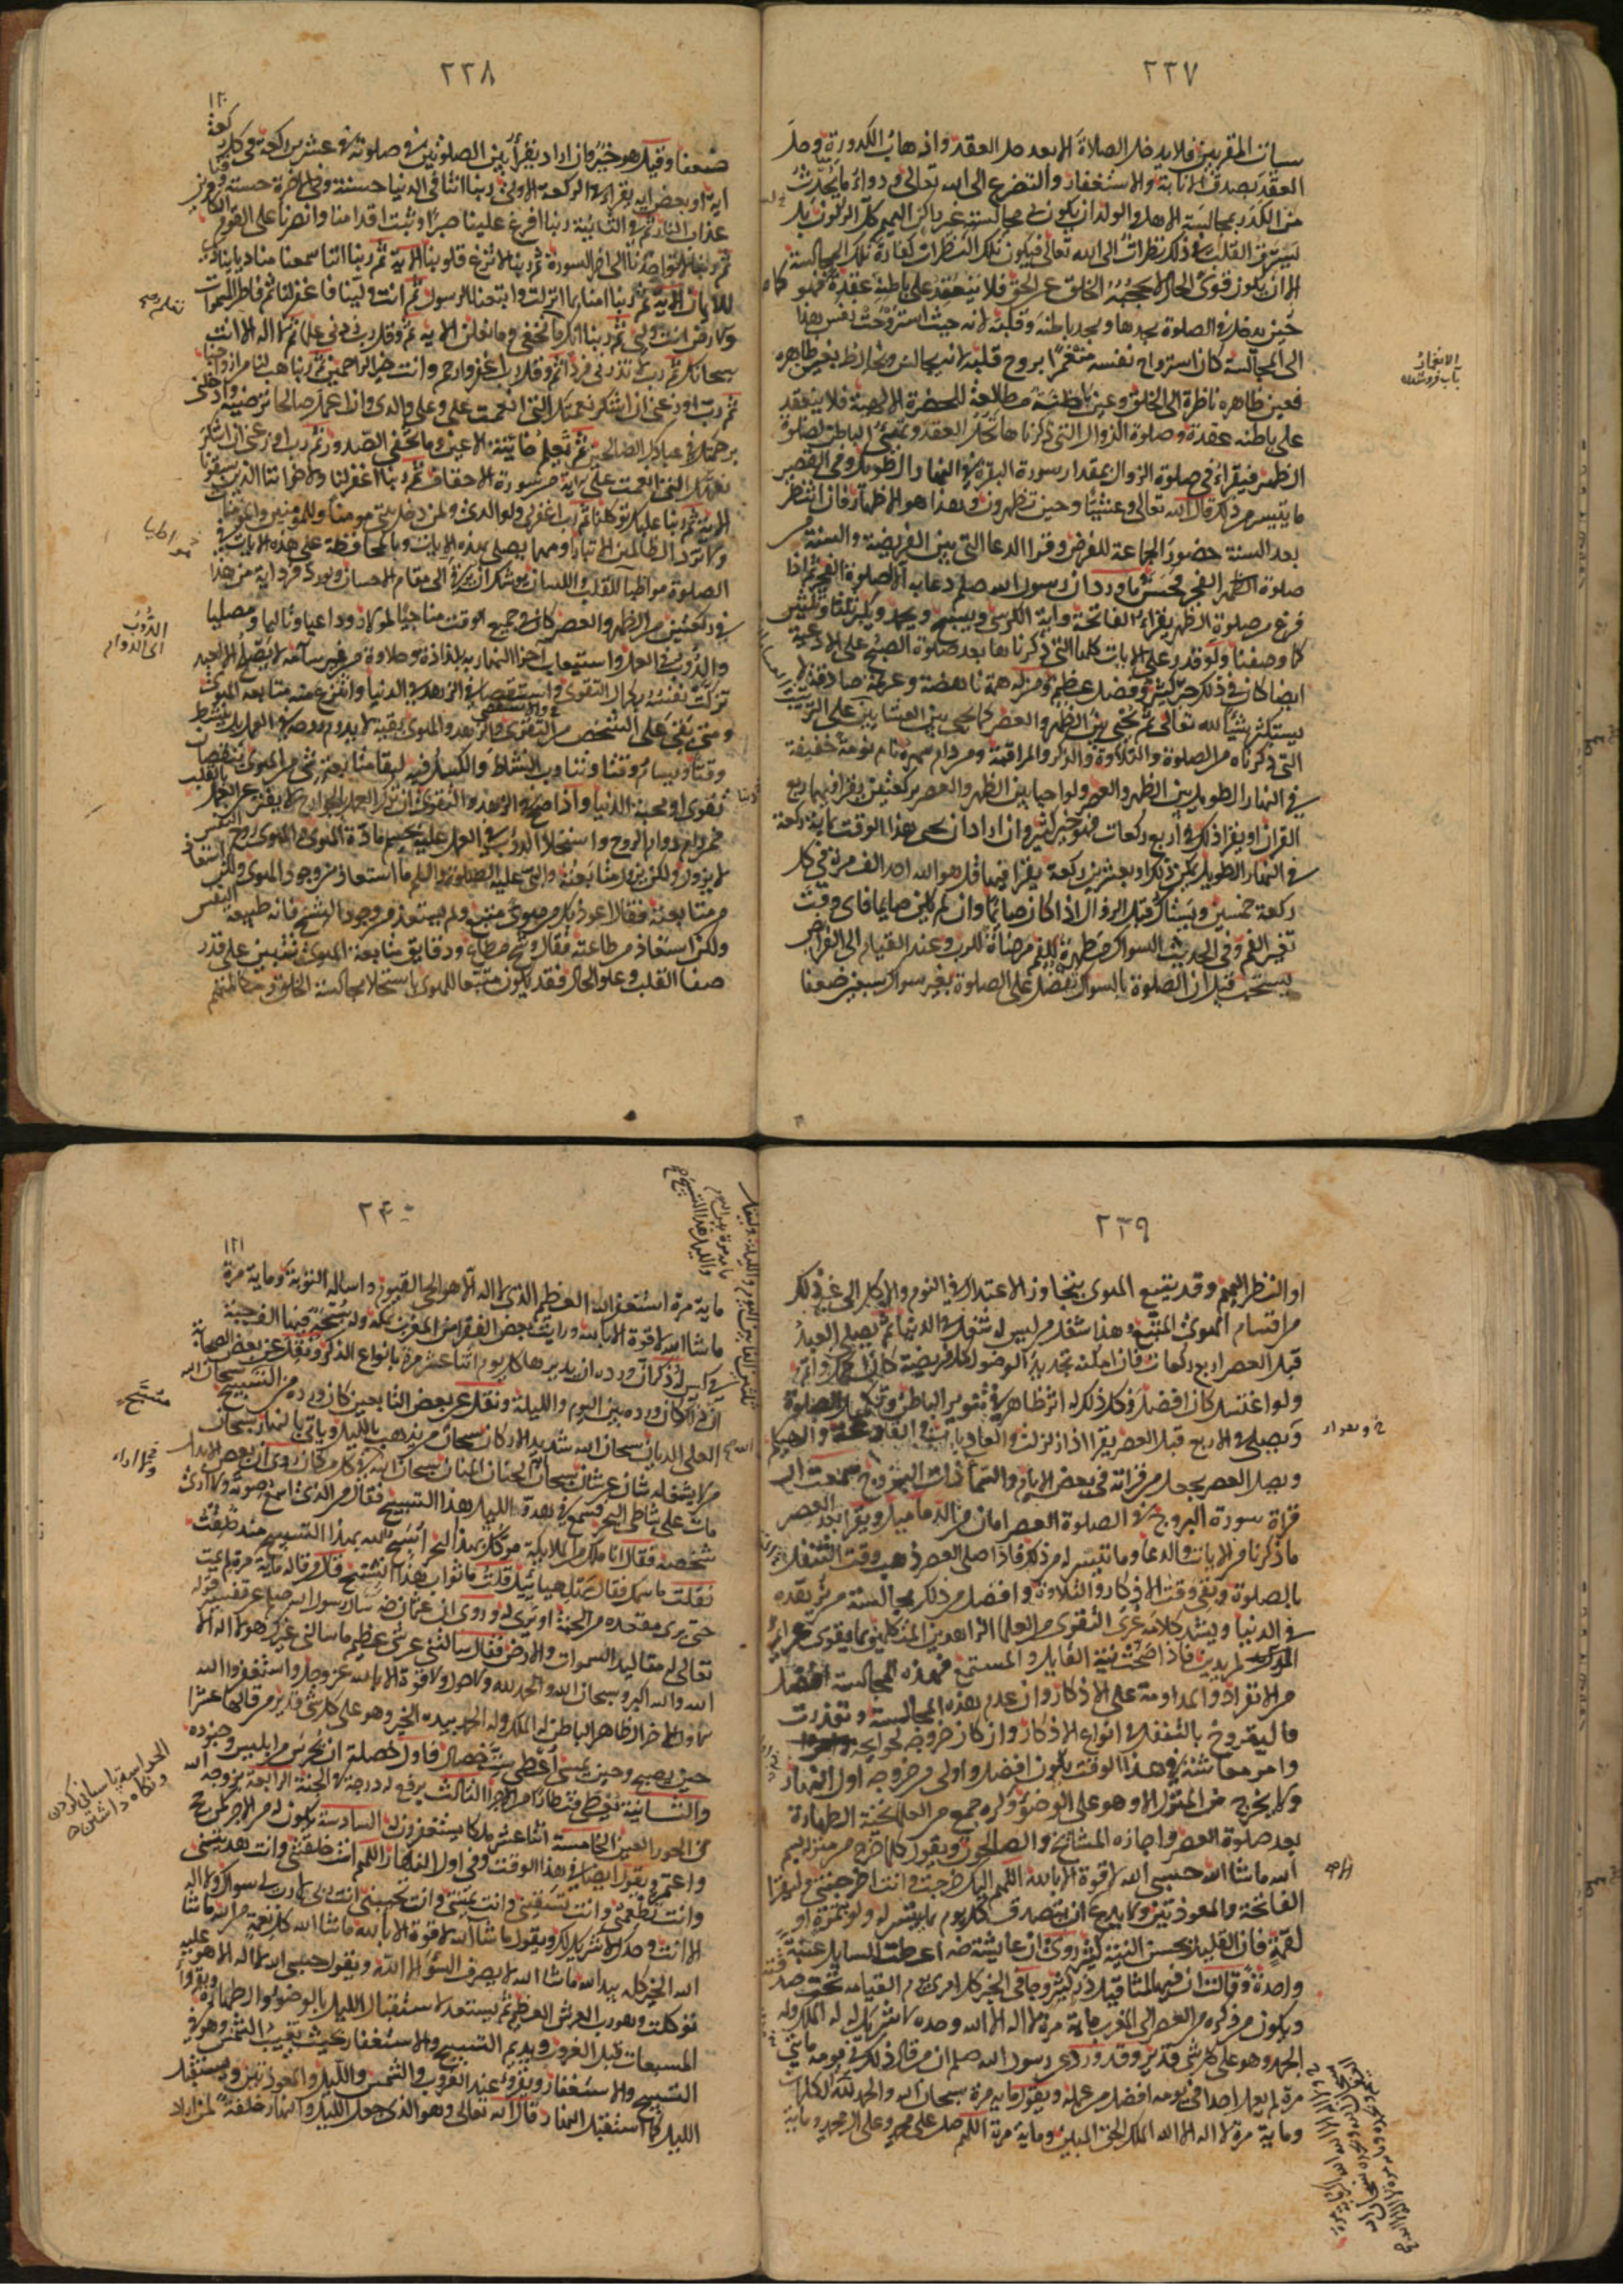 ٢٣٧
سيآت المقربين فلا يدخل الصلاة الا بعد حل العقد واذهاب الكدورة وحل
العقد بصدق الانابة والاستغفار والتضرع الى الله تعالى ودواء ما يحدث
من الكدر بمجالسة الاهل والولد ان يكون في مجالسته غير راكن اليهم كل الركون بل
يسترق القلب في ذلك نظرات الى الله تعالى فيكون تلك النظرات كفارة لتلك المجالسة
الا ان يكون قوى الحال لا يحجبه الخلق عن الحق فلا ينعقد على باطنه عقدة فهو كما
حين يدخل في الصلوة يجدها ويجد باطنه وقلبه لانه حيث استروحت نفس هذا
الى المجالسة كان استرواح نفسه منغمرا بروح قلبه لانه يجالس ويخالط بعين ظاهره
فعين ظاهره ناظرة الى الخلق وعين باطنه مطالعة للحضرة الالهية فلا ينعقد
على باطنه عقدة وصلوة الزوال التي ذكرناها تحل العقد وتهيئ الباطن لصلوة
الظهر فيقراء في صلوة الزوال بمقدار سورة البقرة في النهار الطويل وفي القصير
ما يتيسر من ذلك قال الله تعالى وعشيا وحين تظهرون وهذا هو الاظهار فان انتظر
بعد السنة حضور الجماعة للفرض وقرأ الدعا الذي بين الفريضة والسنة من
صلوة الفجر فحسن ما ورد ان رسول الله صلعم دعا به الى صلوة الفجر ثم اذا
فرغ من صلوة الظهر يقراء الفاتحة وآية الكرسي ويسبح ويحمد ويكبر ثلثا وثلثين
كما وصفنا ولو قدر على الآيات كلها التي ذكرناها بعد صلوة الصبح على الادعية
ايضا كان في ذلك خير كثير وفضل عظيم ومن له همة ناهضة وعزيمة صادقة لا
يستكثر شيئا لله تعالى ثم يحيى بين الظهر والعصر كما يحيى بين العشايين على الترتيب
التي ذكرناه من الصلوة والتلاوة والذكر والمراقبة ومن دام سهره نام نومة خفيفة
في النهار الطويل بين الظهر والعصر ولو احيا بين الظهر والعصر بركعتين يقرا فيهما ربع
القرآن او يقرا ذلك في اربع ركعات فهو خير كثير وان اراد ان يحيى هذا الوقت بماية ركعة
في النهار الطويل يمكن ذلك او بعشرين ركعة يقرا فيها قل هو الله احد الف مرة في كل
ركعة خمسين ويستاك قبل الزوال اذا كان صايما وان لم يكن صايما فاى وقت
تغير الفم وفي الحديث السواك مطهرة للفم مرضاة للرب وعند القيام الى الفرايض
يستحب قيل ان الصلوة بالسواك تفضل على الصلوة بغير سواك سبعين ضعفا
٢٣٨
١٢٠
ضعفا وقيل هو خبر وان اراد يقرأ بين الصلوتين في صلوته في عشرين ركعة في كل ركعة
اية او بعض اية يقراء في الركعة الاولى ربنا اتنا في الدنيا حسنة وفي الاخرة حسنة وقنا
عذاب النار ثم في الثانية ربنا افرغ علينا صبرا وثبت اقدامنا وانصرنا على القوم الكافرين
ثم ربنا لا تؤاخذنا الى اخر السورة ثم ربنا لا تزغ قلوبنا الاية ثم ربنا اننا سمعنا مناديا ينادى
للايمان الاية ثم ربنا امنا بما انزلت واتبعنا الرسول ثم انت ولينا فاغفر لنا ثم فاطر السموات
والارض انت وليي ثم ربنا انك تعلم ما نخفي وما نعلن الاية ثم وقل رب زدني علما ثم لا اله الا انت
سبحانك ثم رب لا تذرني فردا ثم وقل رب اغفر وارحم وانت خير الراحمين ثم ربنا هب لنا من ازواجنا
ثم رب اوزعني ان اشكر نعمتك التي انعمت علي وعلى والدي وان اعمل صالحا ترضيه وادخلني
برحمتك في عبادك الصالحين ثم يعلم خاينة الاعين وما تخفي الصدور ثم رب اوزعني ان اشكر
نعمتك التي انعمت علي اية من سورة الاحقاف ثم ربنا اغفر لنا ولاخواننا الذين سبقونا
الاية ثم ربنا عليك توكلنا ثم رب اغفر لي ولوالدي ولمن دخل بيتي مومنا وللمومنين والمومنات
ولا تزد الظالمين الا تبارا ومهما يصلي بهذه الايات وبالمحافظة على هذه الايات في
الصلوة مواطيا للقلب واللسان يوشك ان يرقى الى مقام الاحسان ولو ردد فرد اية من هذا
في ركعتين من الظهر والعصر كان في جميع الوقت مناجيا لمولاه وداعيا وتاليا ومصليا
والدؤب في العمل واستيعاب اجزا النهار بلذاذة وحلاوة من غير سآمة لا يصلح الا لعبد
تزكت نفسه بكمال التقوى والاستقصا في الزهد في الدنيا وانتزع عنه متابعة الهوى
ومتى بقي على الشخص من التقوى والزهد والهوى بقية لا يدوم روحه في العمل بل ينشط
وقتا ويسأم وقتا ويتناوب النشاط والكسل فيه لبقا متابعة شي من الهوى بنقصان
تقوى او محبة الدنيا واذا صح في الزهد والتقوى فان ترك العمل بالجوارح لا يفتر عن العمل بالقلب
فمن رام دوام الروح واستحلا الدؤب في العمل فعليه بحسم مادة الهوى والهوى روح النفس
لا يزول ولكن يزول متابعته والنبي عليه الصلوة والسلم ما استعاذ من وجود الهوى ولكن استعاذ
من متابعته فقال اعوذ بك من هوى متبع ولم يستعذ من وجود الشح فانه طبيعة النفس
ولكن استعاذ من طاعته فقال وشح مطاع ودقايق متابعة الهوى تتبين على قدر
صفا القلب وعلو الحال فقد يكون متبعا للهوى باستحلا مجالسة الخلق ومكالمتهم
الدؤب
الى الدوام
٢٣٩
او النظر اليهم وقد يتبع الهوى بتجاوز الاعتدال في النوم والاكل الى غير ذلك
من اقسام الهوى المتبع وهذا شغل من ليس له شغل في الدنيا ثم يصلي العبد
قبل العصر اربع ركعات فان امكنه تجديد الوضو لكل فريضة كان اكمل واتم
ولو اغتسل كان افضل فكل ذلك له اثر ظاهر في تنوير الباطن وتكميل الصلوة
ويصلي في الاربع قبل العصر يقرا اذا زلزلت والعاديات والقارعة والهيكم
ويصلي العصر ويجعل من قراته في بعض الايام والسما ذات البروج سمعت ان
قراة سورة البروج في الصلوة العصر امان من الدماميل ويقرا بعد العصر
ما ذكرنا من الايات والدعا وما تيسر له من ذلك فاذا صلى العصر ذهب وقت التنفل
بالصلوة وبقي وقت الاذكار والتلاوة وافضل من ذلك مجالسة من يزهده
في الدنيا ويشد كلامه عرى التقوى من العلما الزاهدين المتكلمين بما يقوى عزائم
المريدين فاذا صحت نية القايل والمستمع فهذه المجالسة افضل
من الانفراد والمداومة على الاذكار وان عدم هذه المجالسة وتعذرت
فاليتروح بالتنقل في انواع الاذكار وان كان خروجه لحوايجه
وامر معاشه في هذا الوقت يكون افضل واولى من خروجه اول النهار
ولا يخرج من المنزل الا وهو على الوضو وكره جمع من العلما تحية الطهارة
بعد صلوة العصر واجازه المشايخ والصالحون ويقول كلما خرج من منزله بسم
الله ماشا الله حسبي الله لا قوة الا بالله اللهم اليك خرجت وانت اخرجتني وليقرا
الفاتحة والمعوذتين ولا يدع ان يتصدق كل يوم بما يتيسر له ولو بتمرة او
لقمة فان القليل بحسن النية كثير وروى ان عايشة رضه اعطت السايل عنبة
واحدة وقالت ان فيها لمثاقيل ذر كثير وجا في الخبر كل امرئ يوم القيامة تحت صدقته
ويكون من ذكره من العصر الى المغرب ماية مرة لا اله الا الله وحده لا شريك له له الملك وله
الحمد وهو على كل شى قدير وقد ورد عن رسول الله صلعم ان من قال ذلك في يومه مايتي
مرة لم يعمل احد في يومه افضل من عمله ويقول ماية مرة سبحان الله والحمد لله الكلمات
وماية مرة لا اله الا الله الملك الحق المبين وماية مرة اللهم صل على محمد وعلى ال محمد وماية
٢٤٠
١٢١
ماية مرة استغفر الله العظيم الذي لا اله الا هو الحي القيوم واساله التوبة وماية مرة
ماشا الله لا قوة الا بالله ورايت بعض الفقرا من المغرب بمكة وله سبحة فيها الف حبة
في كيس له ذكر ان ورده ان يديرها كل يوم اثنا عشر مرة بانواع الذكر ونقل عن بعض الصحابة
ان ذلك كان ورده بين اليوم والليلة ونقل عن بعض التابعين كان ورده من التسبيح
العلي الديان سبحان الله شديد الاركان سبحان من يذهب بالليل وياتي بالنهار سبحان
من لا يشغله شان عن شان سبحان الحنان المنان سبحان الله في كل مكان روى ان بعض الابدال
بات على شاطي البحر فسمع في هدو الليل هذا التسبيح فقال من الذي اسمع صوته ولا ارى
شخصه فقال انا ملك من الملايكة موكل بهذا البحر اسبح الله بهذا التسبيح منذ خلقت
فقلت ما اسمك فقال مهلهيائيل قلت ما ثواب هذا التسبيح قال من قاله ماية مرة لم يمت
حتى يرى مقعده من الجنة او يرى له وروى ان عثمان رضه سال رسول الله صلعم عن تفسير قوله
تعالى له مقاليد السموات والارض فقال سالتني عن شى عظيم ما سالني غيرك هو لا اله الا
الله والله اكبر وسبحان الله والحمد لله ولا حول ولا قوة الا بالله عز وجل واستغفر الله
الاول الاخر الظاهر الباطن له الملك وله الحمد بيده الخير وهو على كل شى قدير من قالها عشرا
حين يصبح وحين يمسى اعطي ست خصال فاول خصلة ان يحرس من ابليس وجنوده
والثانية يعطى قنطارا من الاجر الثالث يرفع له درجة في الجنة الرابعة يزوجه الله
من الحور العين الخامسة اثنا عشر ملكا يستغفرون له السادسة يكون له من الاجر كمن حج
واعتمر ويقول ايضا في هذا الوقت وفي اول النهار اللهم انت خلقتني وانت هديتني
وانت تطعمني وانت تسقيني وانت تميتني وانت تحييني انت ربي لا رب لي سواك ولا اله
الا انت وحدك لا شريك لك ويقول ماشا الله لا قوة الا بالله ماشا الله كل نعمة من الله ماشا
الله الخير كله بيد الله ماشا الله لا يصرف السؤ الا الله ويقول حسبي الله لا اله الا هو عليه
توكلت وهو رب العرش العظيم ثم يستعد لاستقبال الليل بالوضو والطهارة ويقرا
المسبعات قبل الغروب ويديم التسبيح والاستغفار بحيث تغيب الشمس وهو في
التسبيح والاستغفار ويقرا عند الغروب والشمس والليل والمعوذتين ويستقبل
الليل كما استقبل النهار قال الله تعالى وهو الذي جعل الليل والنهار خلفة لمن اراد